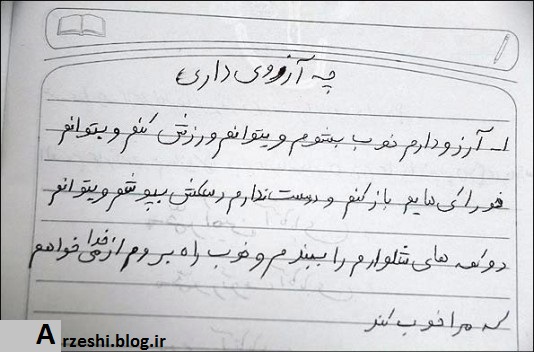 چه آرزوی داری؟
۱- آرزو دارم خوب بشوم و بتوانم ورزش کنم و بتوانم
خودرا کی هایم باز کنم و دوست ندارم دستکش بپوشم و بتوانم
دوکمه های شلوارم را ببندم و خوب راه بروم از خدا می خواهم
که مرا خوب کند
Arzeshi.blog.ir